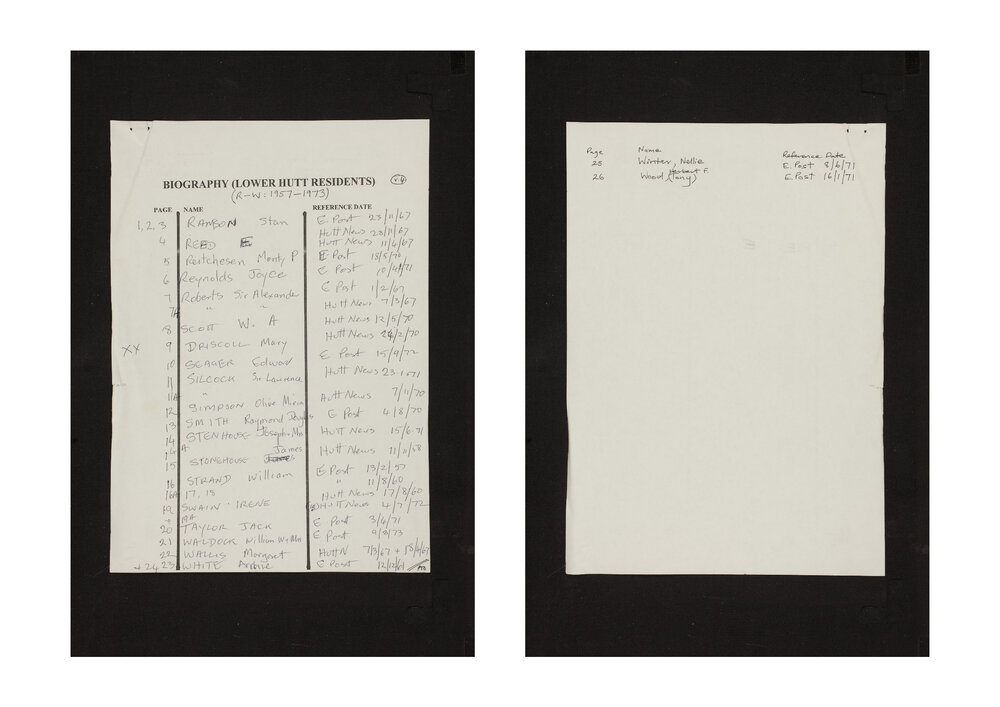 BIOGRAPHY (LOWER HUTT RESIDENTS) V.4
(R-W: 1957-1973)
PAGE NAME REFERENCE DATE
1, 2, 3 RANSON Stan E Post 23/11/67
Hutt News 28/11/67
4 REED E Hutt News 11/4/67
5 Monty P E Post 18/5/70
6 Reynolds Joyce E Post
7 Roberts Sir Alexander E Post 1/2/67
7A " " Hutt News 7/3/67
8 SCOTT W. A Hutt News 12/5/70
XX 9 DRISCOLL Mary Hutt News 24/2/70
10 SEAGER Edward E Post 15/9/72
11 SILCOCK Sir Lawrence Hutt News 23.1.71
11A "
12 SIMPSON Olive Hutt News 7/11/70
13 SMITH Raymond Douglas E Post 4/8/70
14 STENHOUSE Joseph + Mrs Hutt News 15/6.71
14A
15 STONEHOUSE James Hutt News 11/11/58
16 STRAND William E Post 13/2/57
16A 17, 18 " 11/8/60
Hutt News 17/8/60
19 SWAIN IRENE Hutt News 4/7/72
20 TAYLOR JACK E Post 3/4/71
21 WALDOCK William W + Mrs E Post 9/3/73
22 WALLIS Margaret Hutt N 7/3/67 +
+24 23 WHITE Archie E Post 12/12/61
PTO
Page Name Reference Date
25 Winter, Nellie E. Post 8/6/71
26 Wood, Herbert F. (Tony) E. Post 16/1/71